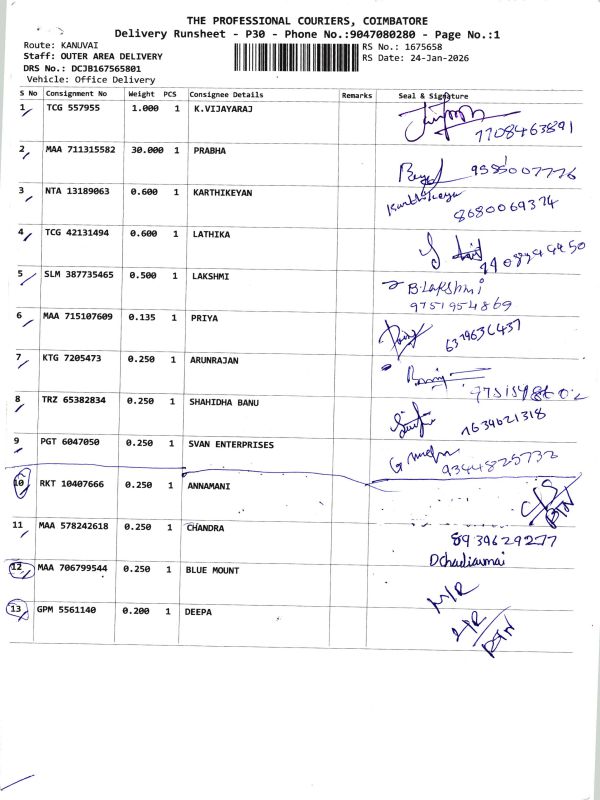 THE PROFESSIONAL COURIERS, COIMBATORE
Delivery Runsheet - P30 - Phone No.:9047080280 - Page No.:1
Route: KANUVAI
RS No.: 1675658
Staff: OUTER AREA DELIVERY
RS Date: 24-Jan-2026
DRS No.: DCJB167565801
Vehicle: Office Delivery
S No Consignment No Weight PCS Consignee Details Remarks Seal & Signature
1 TCG 557955 1.000 1 K.VIJAYARAJ
7708463891
2 MAA 711315582 30.000 1 PRABHA
9585007776
3 NTA 13189063 0.600 1 KARTHIKEYAN Karthikeya
8680069374
4 TCG 42131494 0.600 1 LATHIKA
5 SLM 387735465 0.500 1 LAKSHMI B.Lakshmi
9751954869
6 MAA 715107609 0.135 1 PRIYA
6379636437
7 KTG 7205473 0.250 1 ARUNRAJAN
8 TRZ 65382834 0.250 1 SHAHIDHA BANU
7634621318
9 PGT 6047050 0.250 1 SVAN ENTERPRISES
9344825732
10 RKT 10407666 0.250 1 ANNAMANI
RTN
11 MAA 578242618 0.250 1 CHANDRA
8939629277
12 MAA 706799544 0.250 1 BLUE MOUNT
N/R
13 GPM 5561140 0.200 1 DEEPA
RTN